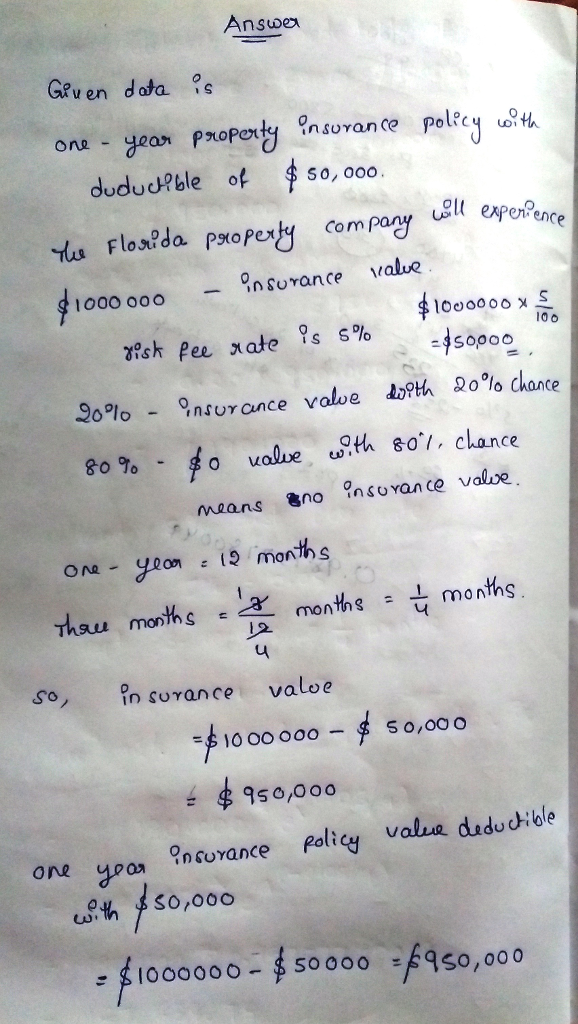 Answer
Given data is
one - year property insurance policy with
duductible of $ 50,000.
The Florida property company will experience
$1000 000 - insurance value.
$1000000 x 5/100
risk fee rate is 5%
=$50000.
20% - insurance value with 20% chance
80% - $0 value with 80%. chance
means no insurance value.
one - year = 12 months
Three months = 3/12 months = 1/4 months.
1
4
so, insurance value
=$1000000 - $ 50,000
= $ 950,000
one year insurance policy value deductible
with $50,000
= $1000000 - $50000 = $950,000